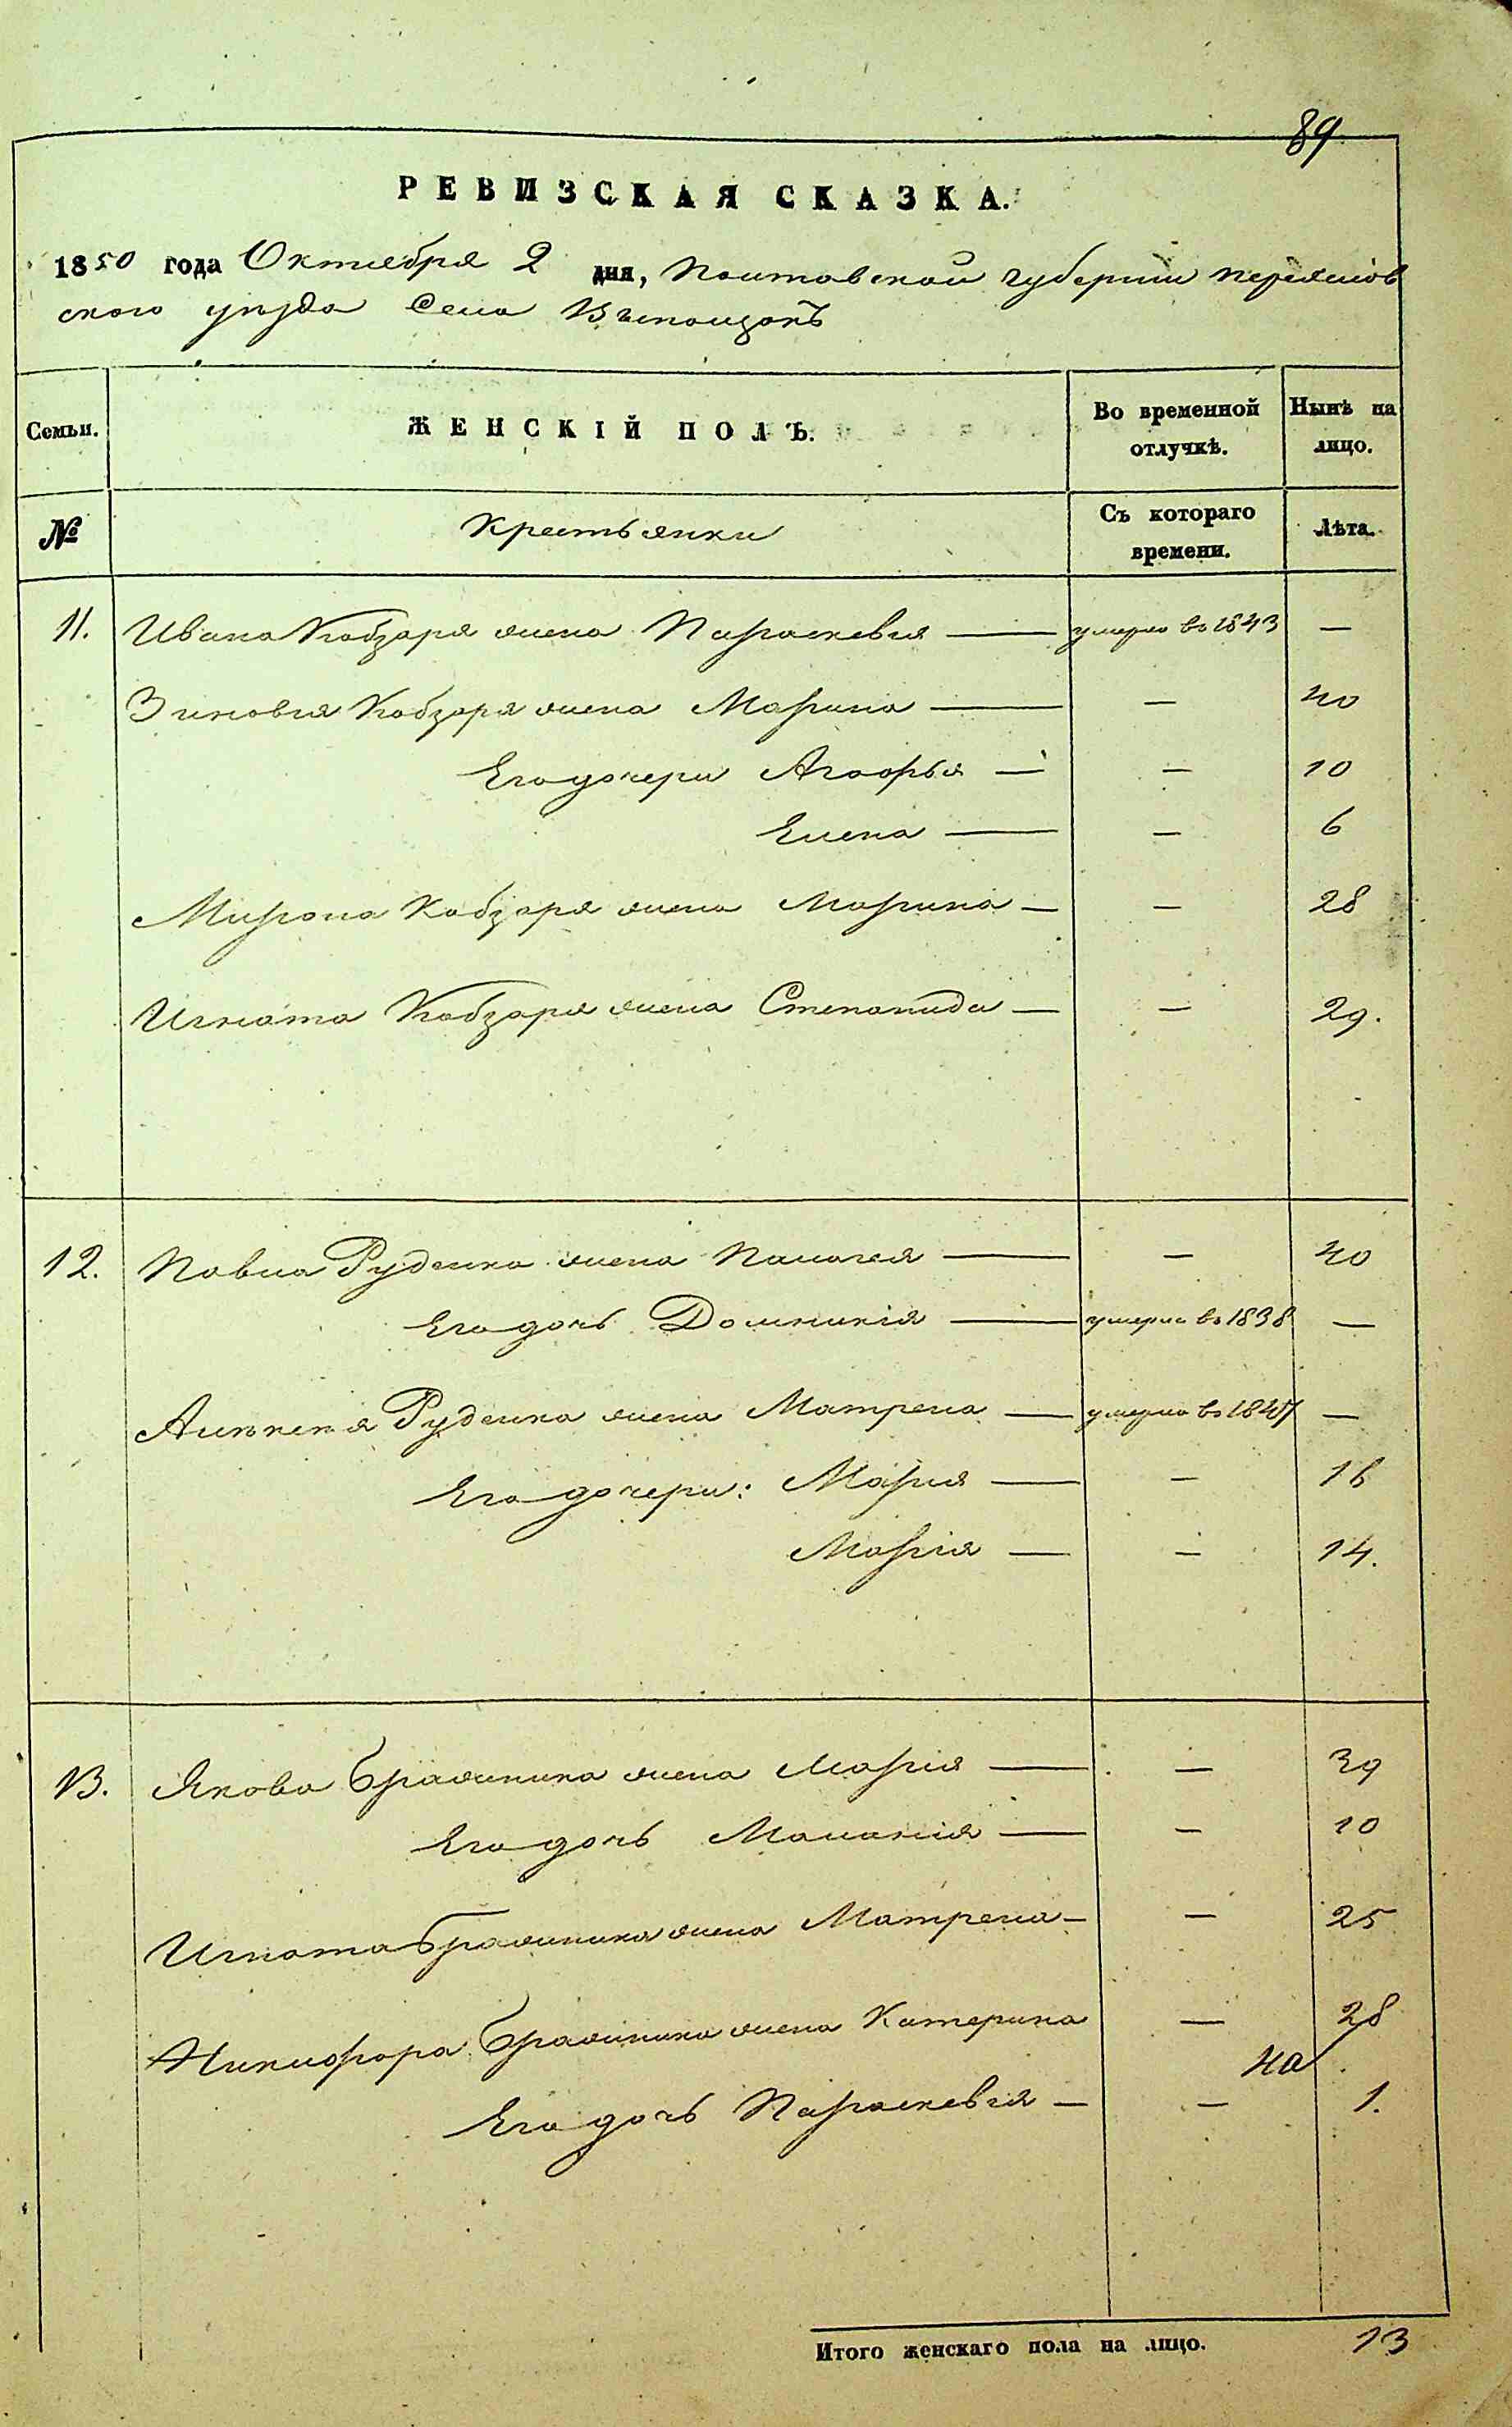 89
РЕВИЗСКАЯ СКАЗКА.
1850 года Октября 2 дня, Полтавской губернии Переяслов
ского уезда Села
Семьи. ЖЕНСКІЙ ПОЛЪ. Во временной отлучкѣ. Нынѣ на лицо.
№ Крестьянки Съ котораго времени. Лѣта.
11. Ивана Кобзаря жена Параскевия — умерла въ 1843 —
Зиновия Кобзаря жена Марина — — 40
Его дочери Агафья — — 10
Елена — — 6
Мирона Кобзаря жена Марина — — 28
Игната Кобзаря жена Степанида — — 29.
12. Павла Руденка жена Палагея — — 40
Его дочь Домникія — умерла въ 1838 —
Алексея Руденка жена Матрена — умерла въ 1847 —
Его дочери: Мария — — 16
Марія — — 14.
13. Якова Бражника жена Марія — — 39
Его дочь Маланія — — 10
Игната Бражника жена Матрена — — 25
Никифора Бражника жена Катерина — 28
на
Его дочь Параскевія — — 1.
Итого женскаго пола на лицо. 13